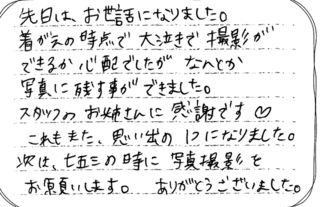 先日は、お世話になりました。
着がえの時点で大泣きで撮影が
できるか心配でしたがなんとか
写真に残す事ができました。
スタッフのお姉さんに感謝です♡
これもまた、思い出の1つになりました。
次は、七五三の時に写真撮影を
お願いします。 ありがとうございました。